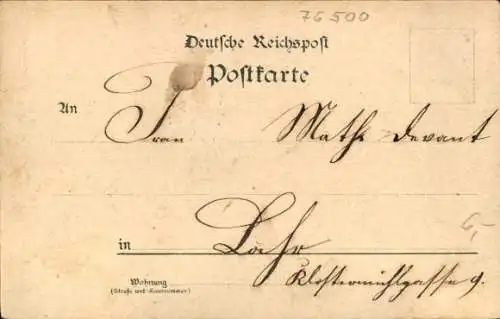 76500
Deutsche Reichspost
Postkarte
An Frau Math. Devant
6,-
in Lahr
Wohnung Klostermühlgasse 9.
(Straße und Hausnummer)